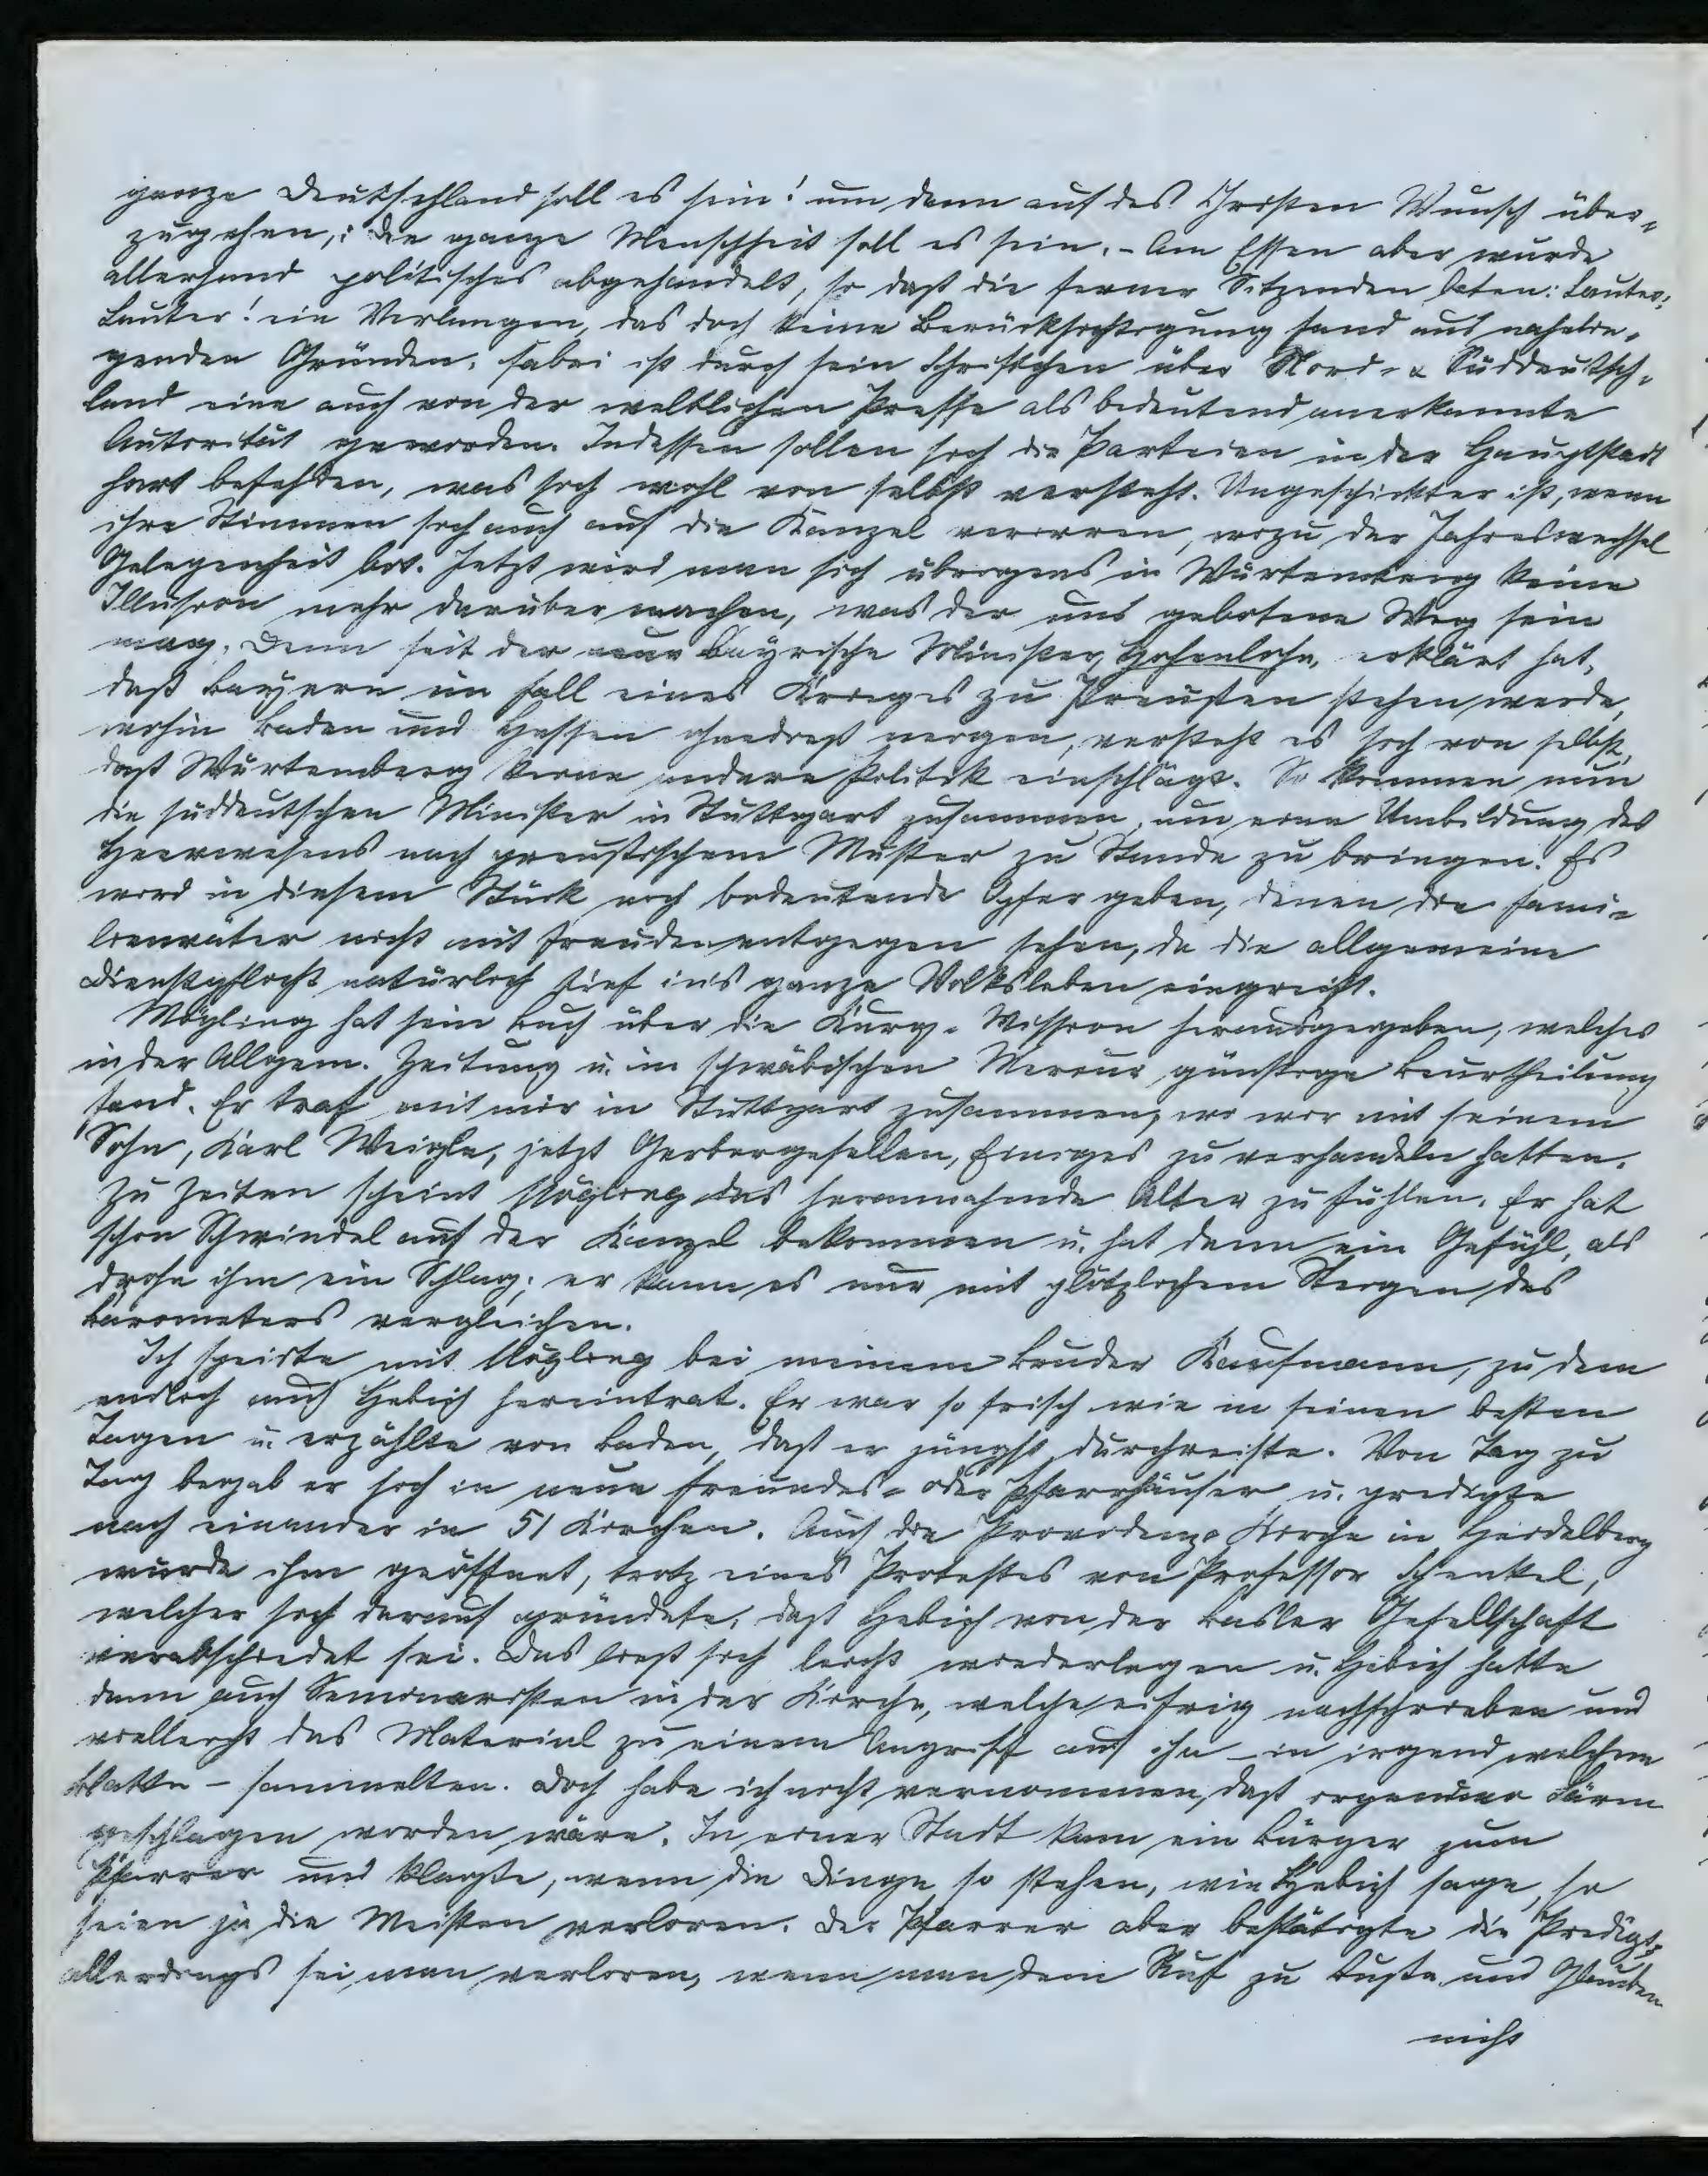 ganze Deutschland soll es sein! um dann auf des Christen Wunsch über-
zugehen,: die ganze Menschheit soll es sein. – Am Essen aber wurde
allerhand politisches abgehandelt, so daß die ferner Sitzenden baten: Lauter,
Lauter! ein Verlangen, das doch keine Berücksichtigung fand aus nahelie-
genden Gründen. Fabri ist durch sein Schriftchen über Nord- & Süddeutsch-
land eine auch von der weltlichen Presse als bedeutend anerkannte
Autorität geworden. Indessen sollen sich die Parteien in der Hauptstadt
hart befehden, was sich wohl von selbst versteht. Ungeschickter ist, wenn
ihre Stimmen sich auch auf die Kanzel verirren, wozu der Jahreswechsel
Gelegenheit bot. Jetzt wird man sich übrigens in Würtemberg keine
Illusion mehr darüber machen, was der uns gebotene Weg sein
mag. Denn seit der neue bayrische Minister, Hohenlohe, erklärt hat,
daß Bayern im Fall eines Krieges zu Preußen stehen werde,
wohin Baden und Hessen ohnedieß neigen, versteht es sich von selbst,
daß Würtemberg keine andere Politik einschlägt. So kommen nun
die süddeutschen Minister in Stuttgart zusammen, um eine Umbildung des
Heerwesens nach preußischem Muster zu Stande zu bringen. Es
wird in diesem Stück noch bedeutende Opfer geben, denen die Fami-
lienväter nicht mit Freuden entgegen sehen, da die allgemeine
Dienstpflicht natürlich tief in's ganze Volksleben eingreift.
Mögling hat sein Buch über die Kurg-Mission herausgegeben, welches
in der Allgem. Zeitung u. im schwäbischen Merkur günstige Beurtheilung
fand. Er traf mit mir in Stuttgart zusammen, wo wir mit seinem
Sohn, Karl Weigle, jetzt Gerbergesellen, Einiges zu verhandeln hatten.
Zu Zeiten scheint Mögling das herannahende Alter zu fühlen. Er hat
schon Schwindel auf der Kanzel bekommen u. hat dann ein Gefühl, als
drohe ihm ein Schlag; er kann es nur mit plötzlichem Steigen des
Barometers vergleichen.
Ich speiste mit Mögling bei meinem Bruder Kaufmann, zu dem
endlich auch Hebich hereintrat. Er war so frisch wie in seinen besten
Tagen u. erzählte von Baden, daß er jüngst durchreiste. Von Tag zu
Tag begab er sich in neue Freundes- oder Pfarrhäuser u. predigte
nach einander in 51 Kirchen. Auch die Providenz-Kirche in Heidelberg
wurde ihm geöffnet, trotz eines Protestes von Professor Schenkel,
welcher sich darauf gründete, daß Hebich von der Basler Gesellschaft
verabschiedet sei. Das ließ sich leicht wiederlegen u. Hebich hatte
dann auch Seminaristen in der Kirche, welche eifrig nachschrieben und
vielleicht das Material zu einem Angriff auf ihn – in irgend welchem
Blatte – sammelten. Doch habe ich nicht vernommen, daß irgendwo Lärm
geschlagen worden wäre. In einer Stadt kam ein Bürger zum
Pfarrer und klagte, wenn die Dinge so stehen, wie Hebich sage, so
seien ja die Meisten verloren. Der Pfarrer aber bestätigte die Predigt,
allerdings sei man verloren, wenn man dem Ruf zu Buße und Glauben
nicht